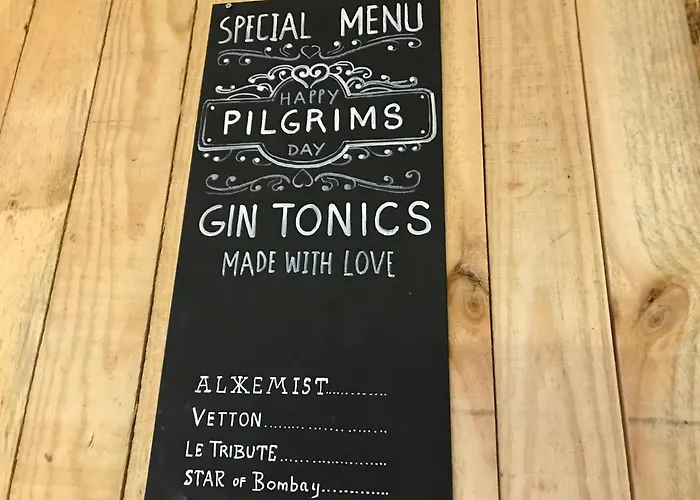 SPECIAL MENU
HAPPY
PILGRIMS
DAY
GIN TONICS
MADE WITH LOVE
ALKEMIST..............
VETTON.....................
LE TRIBUTE..................
STAR of Bombay.............